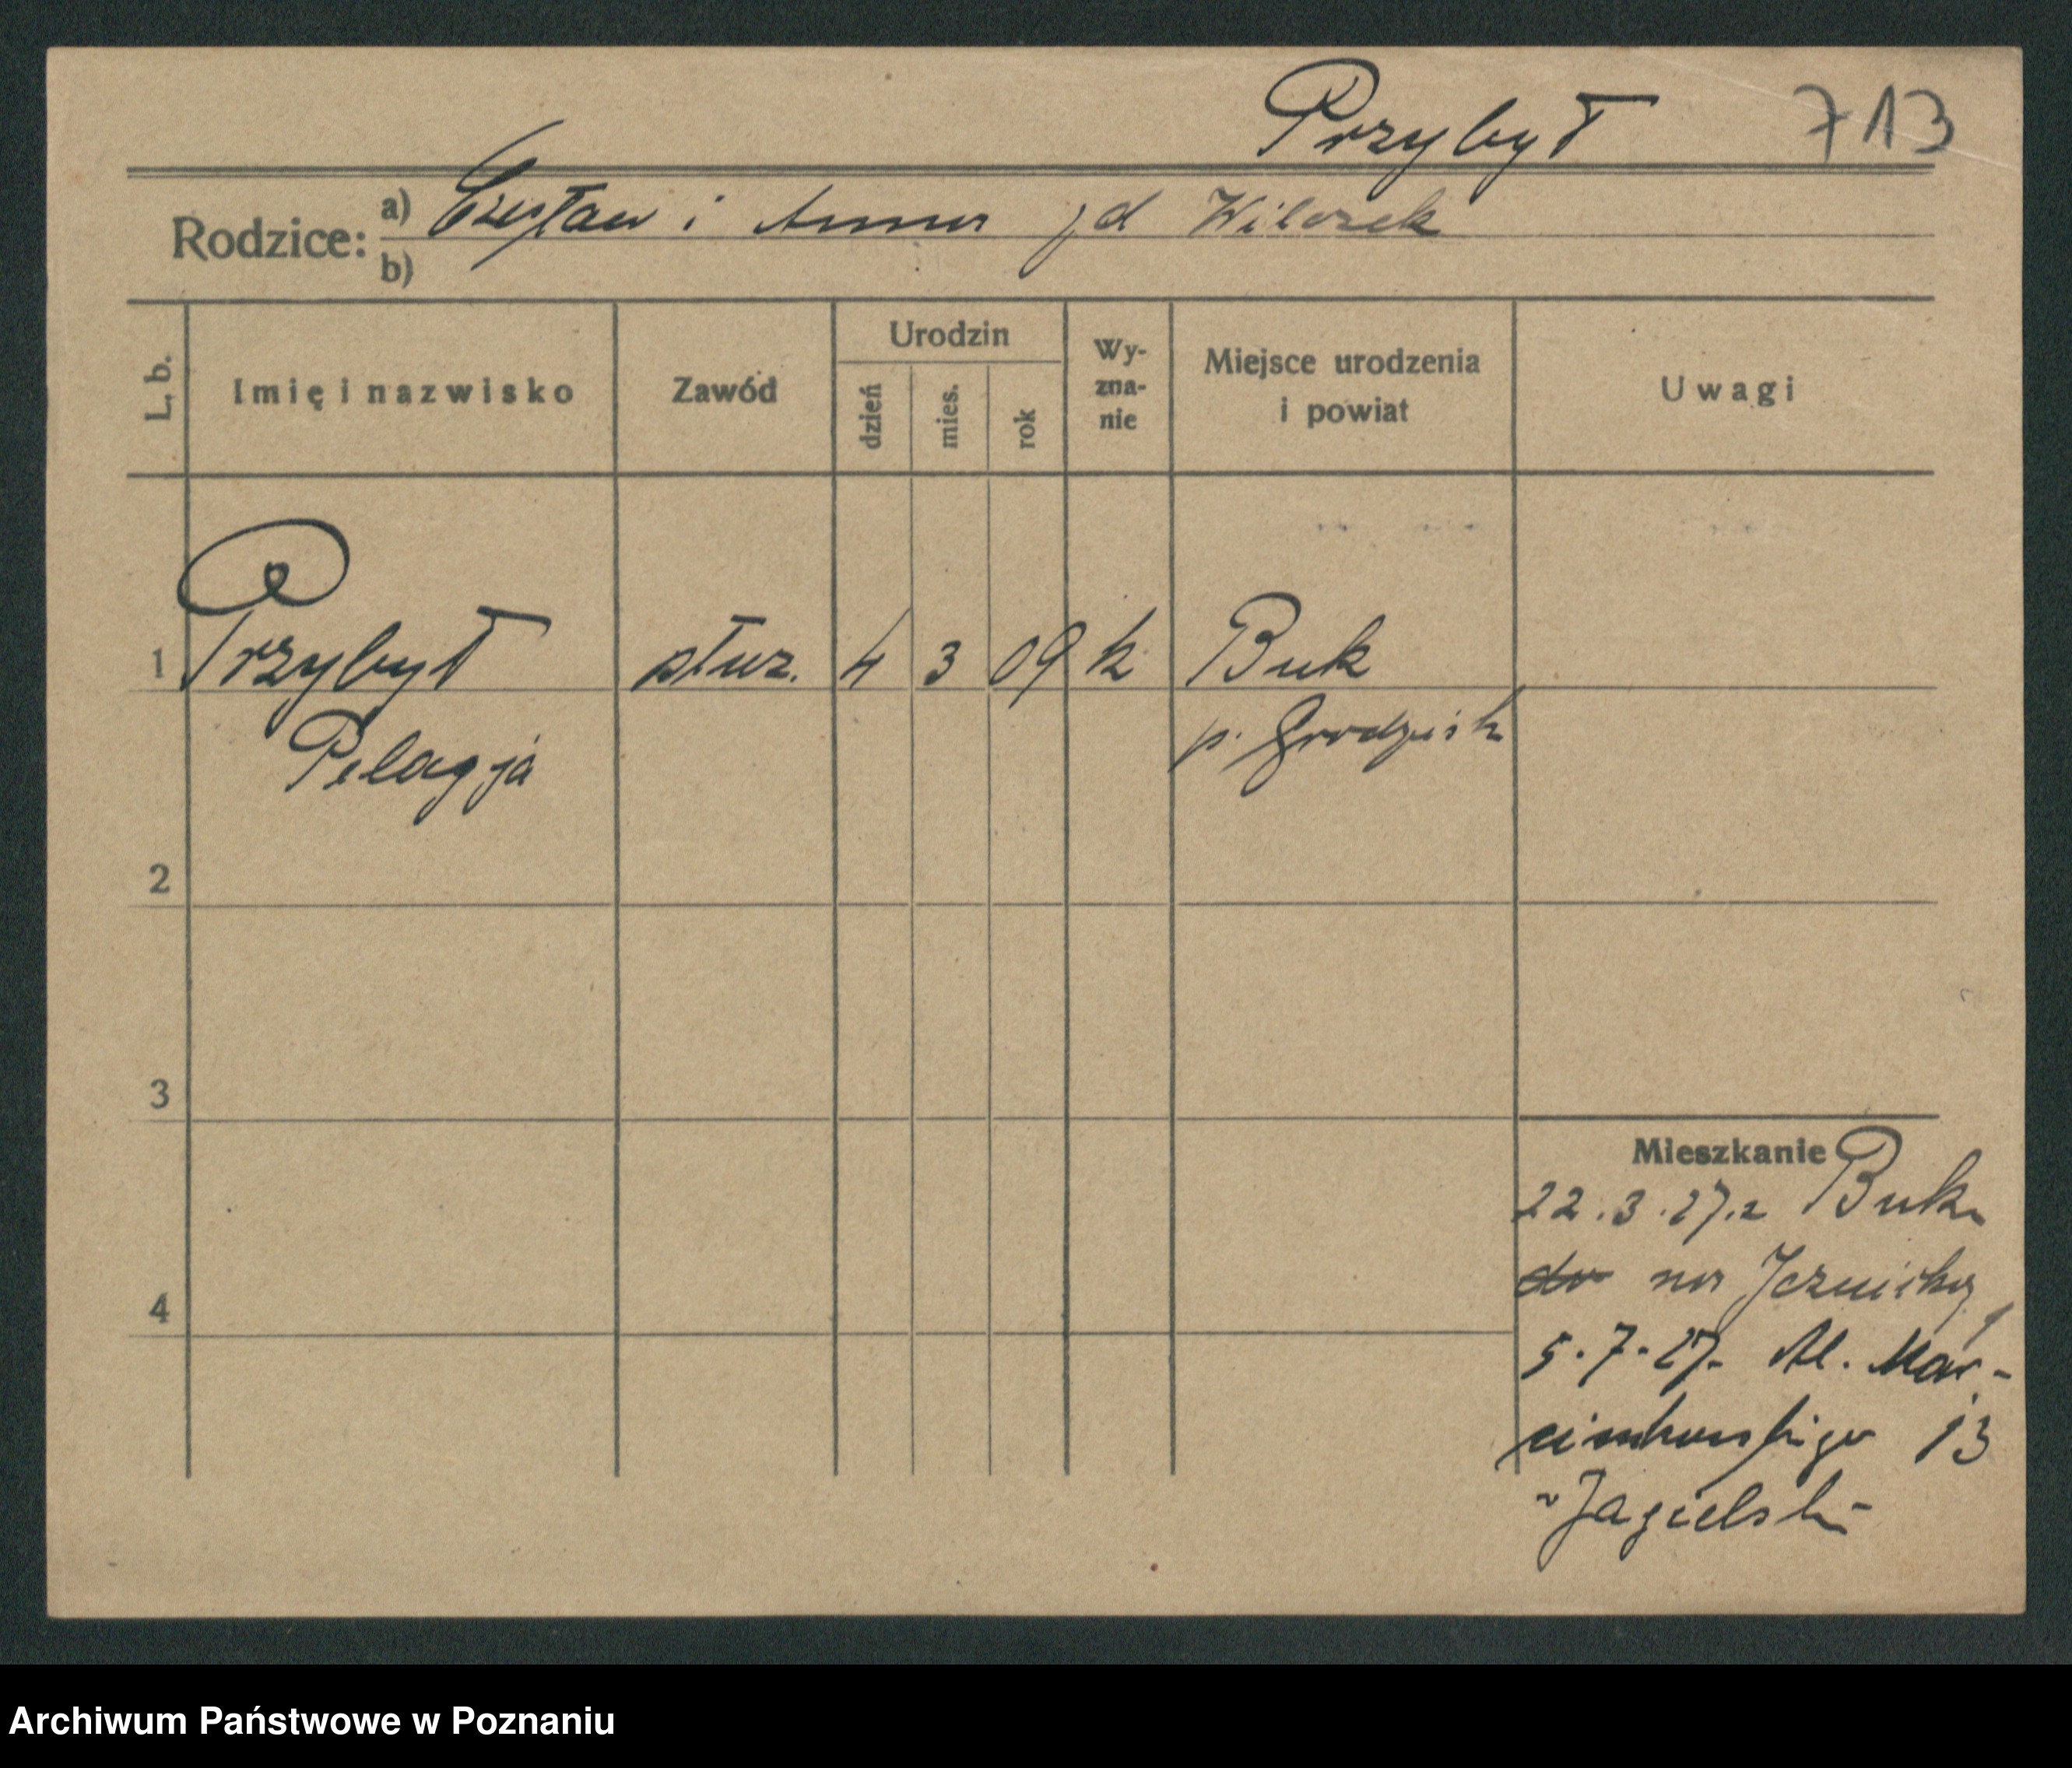 Przybył 713
Rodzice: a) Czesław i Anna zd Wilczek
b)
L. b. Imię i nazwisko Zawód Urodzin dzień mies. rok Wy-zna-nie Miejsce urodzenia i powiat Uwagi
1 Przybył służ. 4 3 09 k Buk
Pelagja p. Grodzisk
2
3
4
Mieszkanie Buk
22.3.27. z
do na
5.7.27. Al. Mar-
cinkowskiego 13
Jagielski
Archiwum Państwowe w Poznaniu